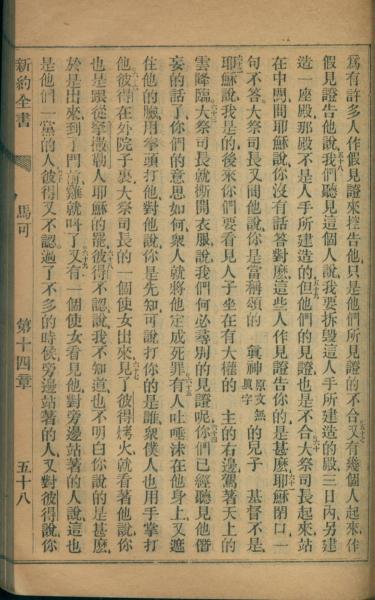 爲有許多人作假見證來控告他只是他們所見證的不合又有幾個人起來作
五十八
假見證告他說我們聽見這個人說我要拆毀這人手所建造的殿三日內另建
造一座殿那殿不是人手所建造的但他們的見證也是不合大祭司長起來站
五十九
六十
在中間問耶穌說你沒有話答對麽這些人作見證告你的是甚麽耶穌閉口一
句不答大祭司長又問他說你是當稱頌的眞神原文無眞字的兒子基督不是
耶穌說我是的後來你們要看見人子坐在有大權的主的右邊駕著天上的
六十二
雲降臨大祭司長就撕開衣服說我們何必尋別的見證呢你們已經聽見他僭
六十三
六十四
妄的話了你們的意思如何衆人就將他定成死罪有人吐唾沫在他身上又遮
六十五
住他的臉用拳頭打他對他說你是先知可說打你的是誰衆僕人也用手掌打
他彼得在外院子裏大祭司長的一個使女出來見了彼得烤火就看著他說你
六十六
六十七
也是跟從拏撒勒人耶穌的彼得不認說我不知道也不明白你說的是甚麽
六十八
於是出來到了門前雞就叫了又有一個使女看見他對旁邊站著的人說這也
六十九
是他們一黨的人彼得又不認過了不多的時候旁邊站著的人又對彼得說你
新約全書
馬可
第十四章
五十八